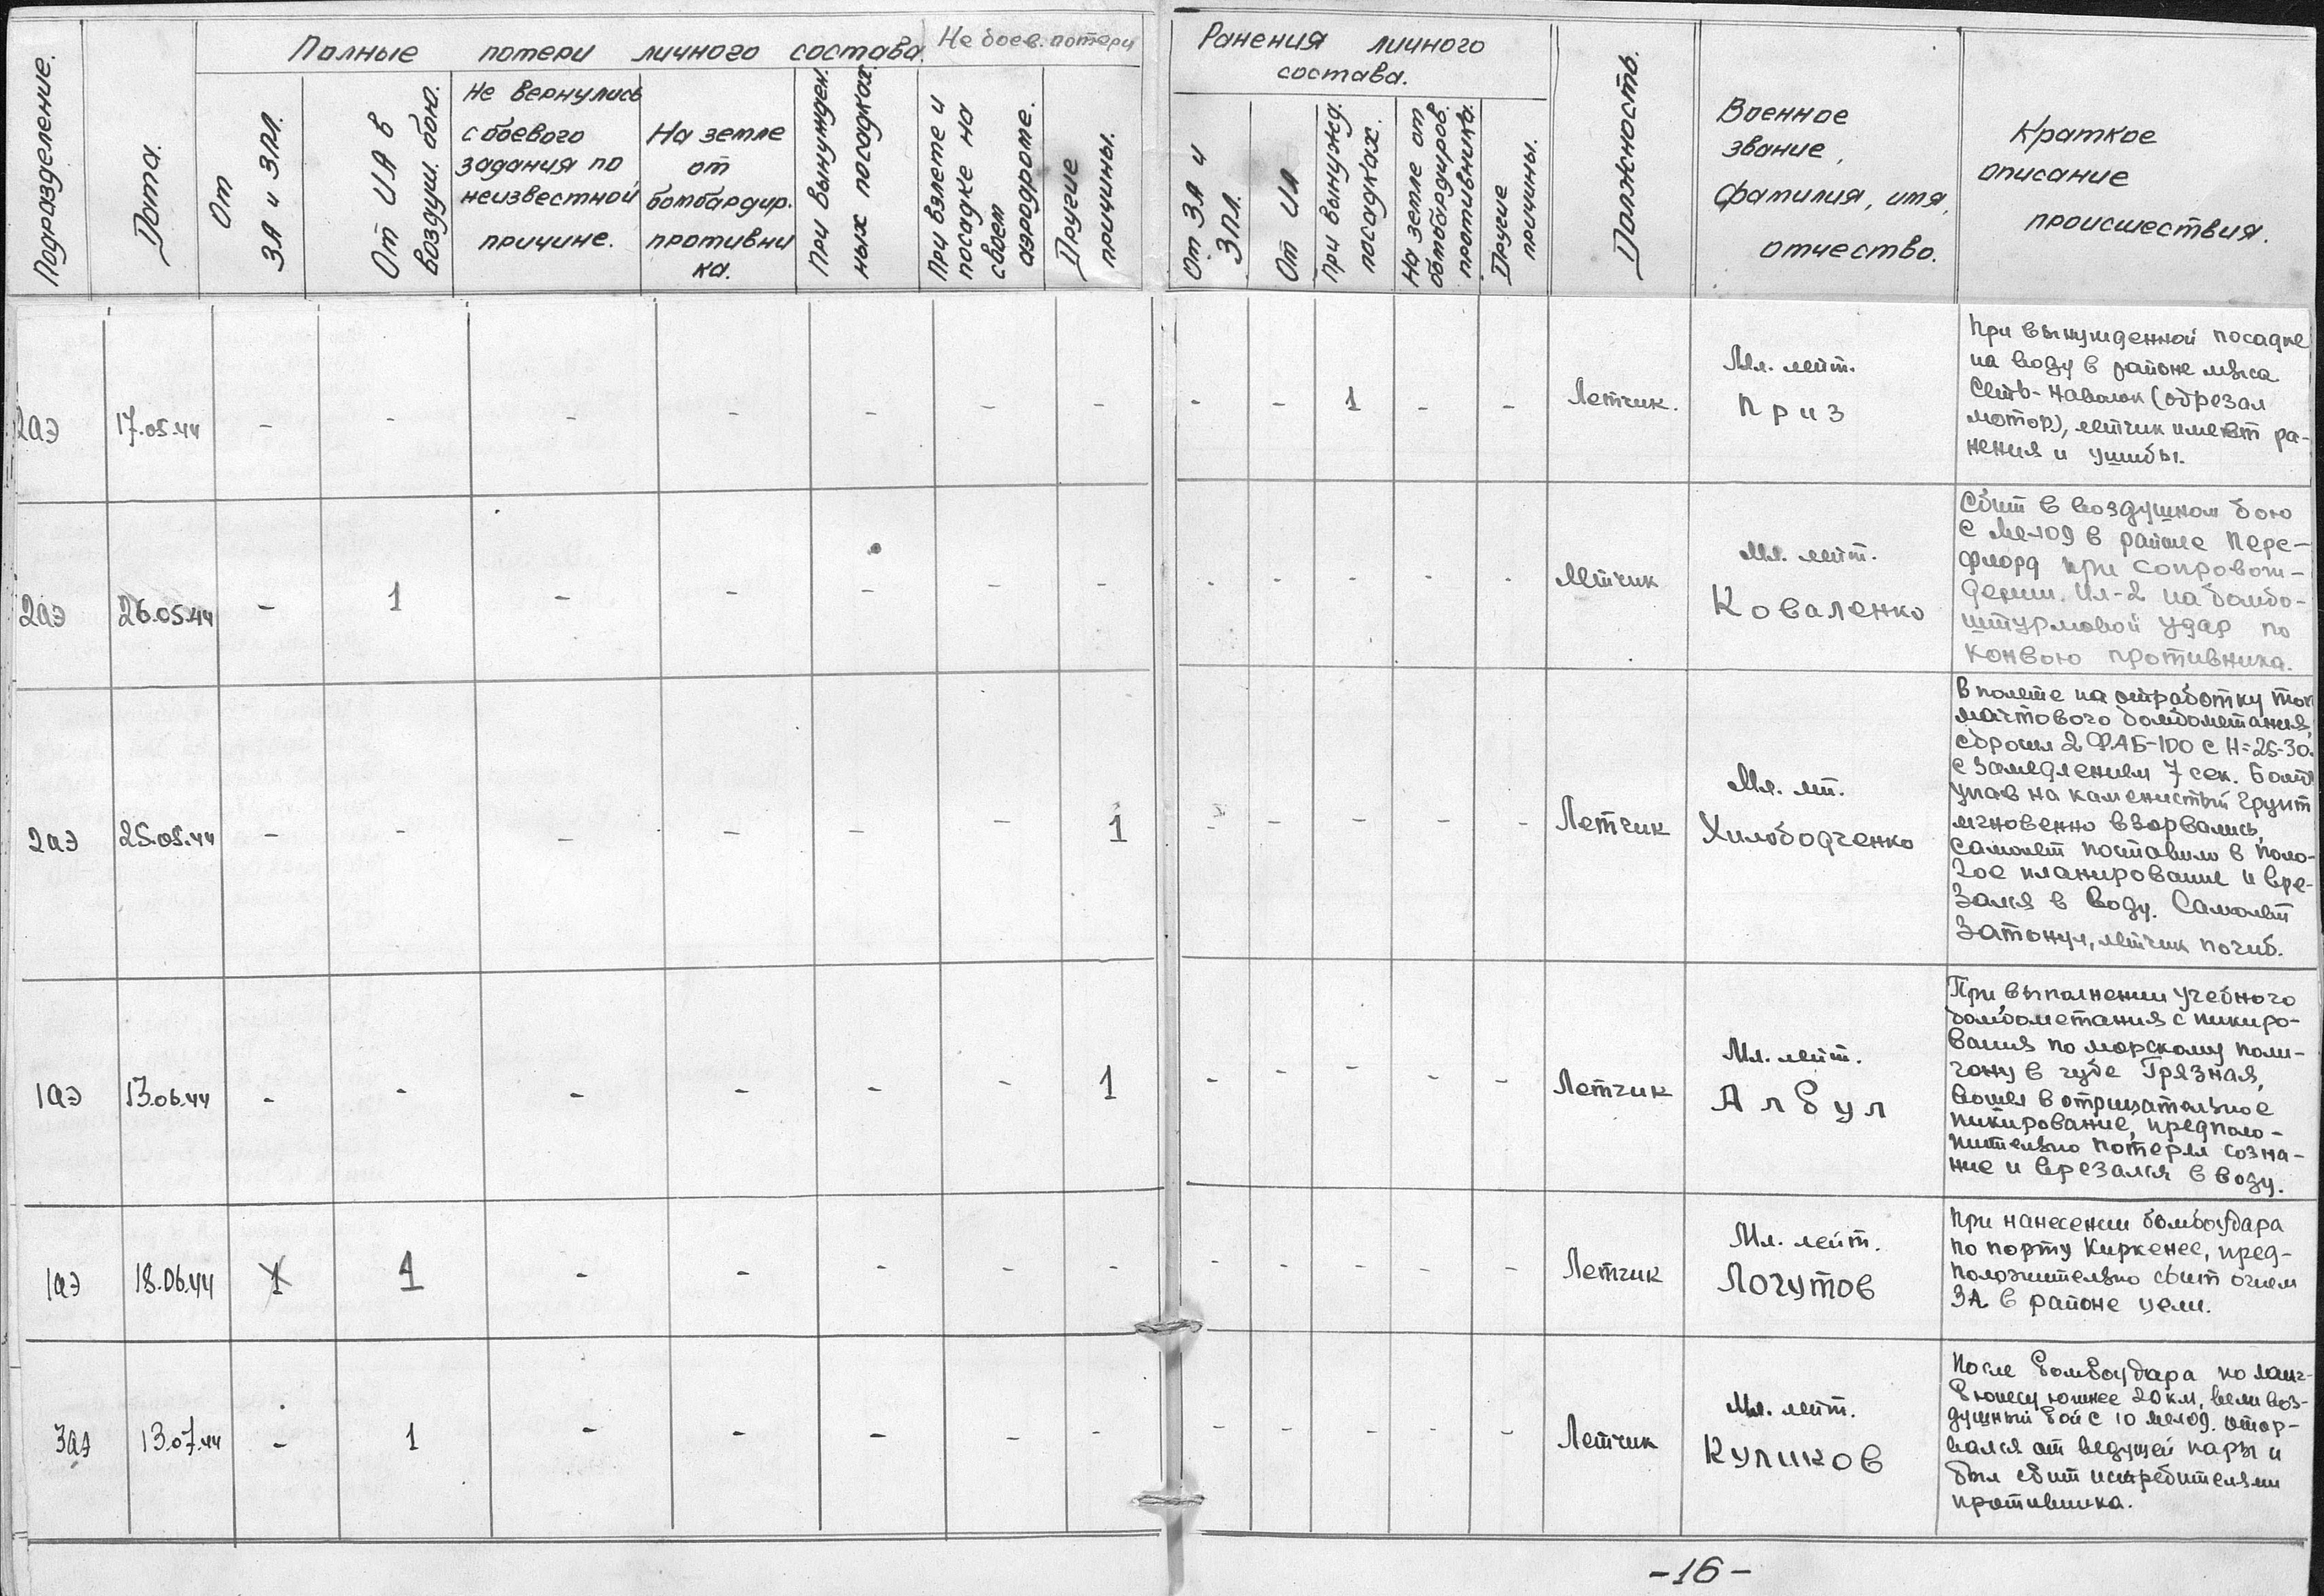 Подразделение.
Дата.
Полные потери личного состава.
Не боев. потери
От
ЗА и ЗПЛ.
От ИА в
воздуш. бою.
Не вернулись
с боевого
задания по
неизвестной
причине.
На земле
от
бомбардир.
противни
ка.
При вынужден.
ных посадках.
При взлете и
посадке на
своем
аэродроме.
Другие
причины.
Ранения личного
состава.
От ЗА и
ЗПЛ.
От ИА
При вынужд.
посадках.
На земле от
бомбардиров.
противника.
Другие
причины.
Должность.
Военное
звание,
фамилия, имя,
отчество.
Краткое
описание
происшествия.
2аэ 17.05.44 - - - - - - - - - 1 - - Летчик.
Мл. лейт.
Приз
При вынужденной посадке
на воду в районе мыса
Сеть-Наволок (обрезал
мотор), летчик имеет ра-
нения и ушибы.
2аэ 26.05.44 - 1 - - - - - - - - - - Летчик
Мл. лейт.
Коваленко
Сбит в воздушном бою
с Ме-109 в районе Перс-
фиорд при сопровож-
дении Ил-2 на бомбо-
штурмовой удар по
конвою противника.
2аэ 25.05.44 - - - - - - 1 - - - - - Летчик
Мл. лт.
Хилободченко
В полете на отработку топ
мачтового бомбометания,
сбросил 2 ФАБ-100 с Н=25-30.
с замедлением 7 сек. Бомбы
упав на каменистый грунт
мгновенно взорвались,
самолет поставило в поло-
гое планирование и вре-
зался в воду. Самолет
затонул, летчик погиб.
1аэ 13.06.44 - - - - - - 1 - - - - - Летчик
Мл. лейт.
Албул
При выполнении учебного
бомбометания с пикиро-
вания по морскому поли-
гону в губе Грязная,
вошел в отрицательное
пикирование, предполо-
жительно потерял созна-
ние и врезался в воду.
1аэ 18.06.44 1 1 - - - - - - - - - - Летчик
Мл. лейт.
Логутов
При нанесении бомбоудара
по порту Киркенес, пред-
положительно сбит огнем
ЗА в районе цели.
3аэ 13.07.44 - 1 - - - - - - - - - - Летчик
Мл. лейт.
Куликов
После бомбоудара по Ланг-
бюнесу южнее 20 км, вели воз-
душный бой с 10 Ме109. Отор-
вался от ведущей пары и
был сбит истребителями
противника.
-16-